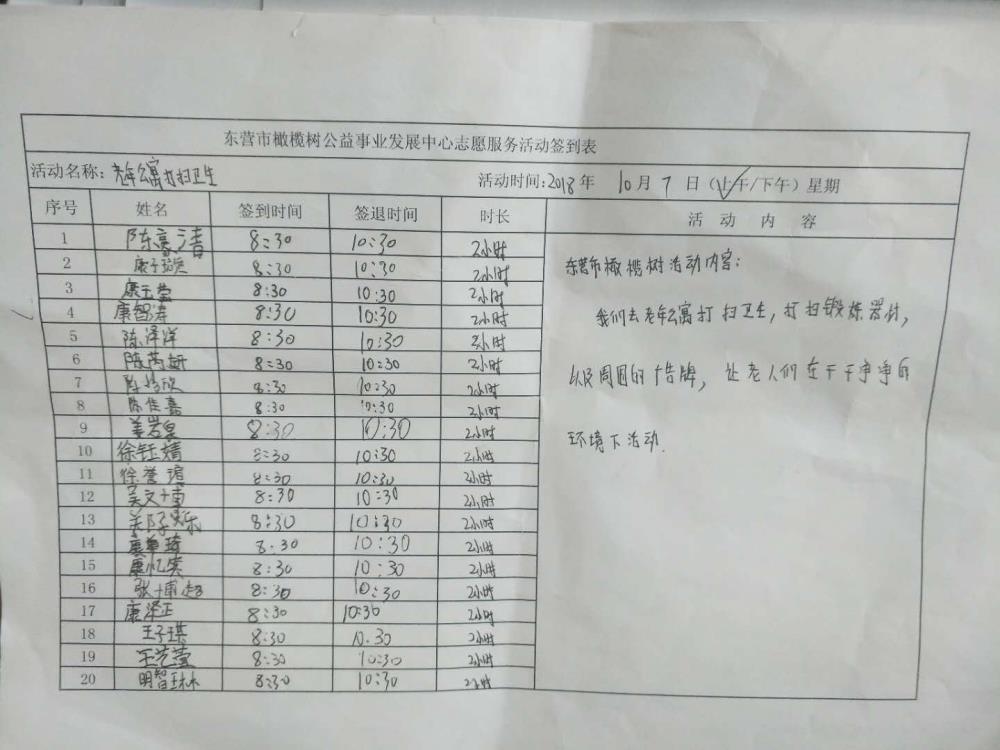 东营市橄榄树公益事业发展中心志愿服务活动签到表
活动名称：老年公寓打扫卫生 活动时间：2018年 10月 7日（上午/下午）星期
序号 姓名 签到时间 签退时间 时长 活动内容
1 8:30 10:30 2小时
2 康子 8:30 10:30 2小时
3 康玉莹 8:30 10:30 2小时
4 康智涛 8:30 10:30 2小时
5 陈泽洋 8:30 10:30 2小时
6 陈芮妍 8:30 10:30 2小时
7 8:30 10:30 2小时
8 陈佳嘉 8:30 10:30 2小时
9 姜岩泉 8:30 10:30 2小时
10 徐钰婧 8:30 10:30 2小时
11 徐誉 8:30 10:30 2小时
12 吴文博 8:30 10:30 2小时
13 8:30 10:30 2小时
14 8:30 10:30 2小时
15 康忆 8:30 10:30 2小时
16 张博超 8:30 10:30 2小时
17 康泽正 8:30 10:30 2小时
18 王子琪 8:30 10.30 2小时
19 王艺莹 8:30 10:30 2小时
20 明智琳 8:30 10:30 2小时
东营市橄榄树活动内容：
我们去老年公寓打扫卫生，打扫锻炼器材，
以及周围的广告牌，让老人们在干干净净的
环境下活动.